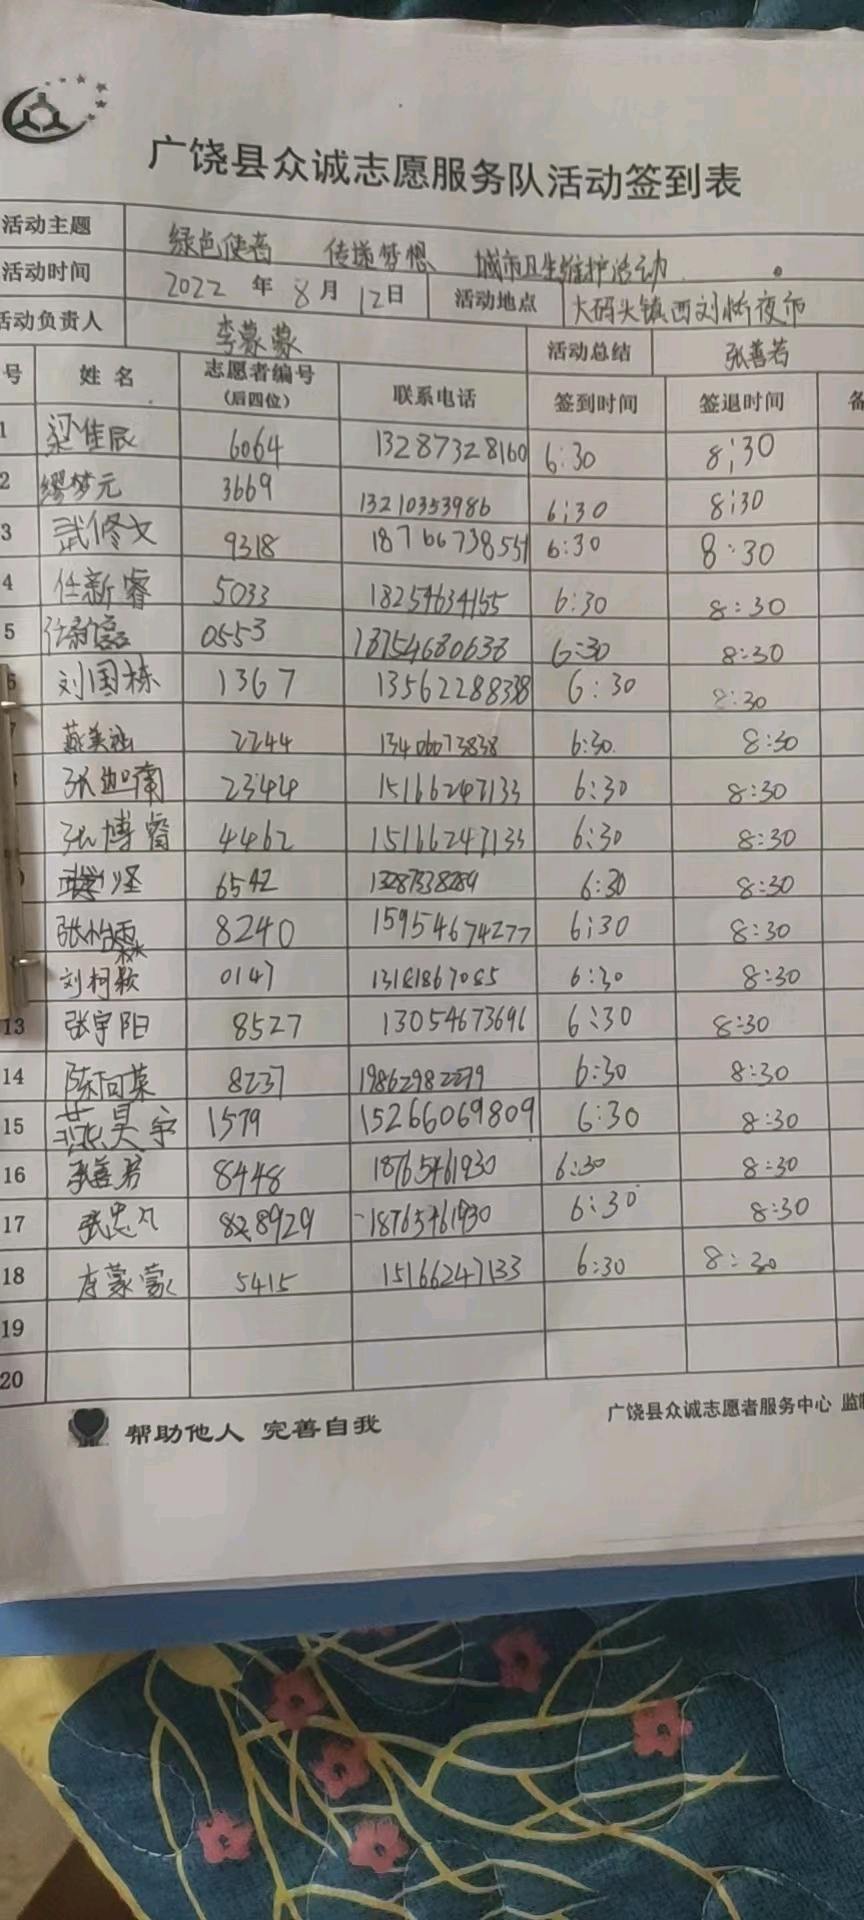 广饶县众诚志愿服务队活动签到表
活动主题 绿色使者 传递梦想 城市卫生维护活动
活动时间 2022 年 8 月 12 日 活动地点 大码头镇西刘桥夜市
活动负责人 李蒙蒙 活动总结 张善若
号 姓 名 志愿者编号 (后四位) 联系电话 签到时间 签退时间 备
1 梁佳辰 6064 13287328160 6:30 8:30
2 缪梦元 3669 13210353986 6:30 8:30
3 武修文 9318 6:30 8:30
4 任新睿 5033 18254634155 6:30 8:30
5 0553 6:30 8:30
6 刘国栋 1367 13562288338 6:30 8:30
2244 13406073838 6:30 8:30
张迦南 2344 15166247133 6:30 8:30
张博睿 4462 15166247133 6:30 8:30
6542 13287338289 6:30 8:30
张怡雨 8240 15954674277 6:30 8:30
刘柯 0147 6:30 8:30
13 张宇阳 8527 13054673696 6:30 8:30
14 陈 8237 6:30 8:30
15 昊宇 1579 15266069809 6:30 8:30
16 张善若 8448 18765461930 6:30 8:30
17 张忠凡 8929 18765461930 6:30 8:30
18 李蒙蒙 5415 15166247133 6:30 8:30
19
20
帮助他人 完善自我
广饶县众诚志愿者服务中心 监制